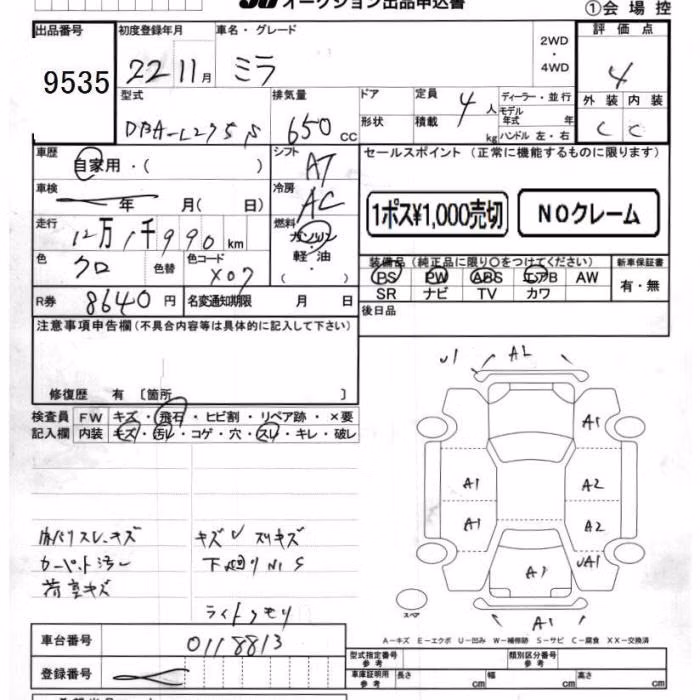 オークション出品申込書
①会場控
出品番号 初度登録年月 車名・グレード 2WD・4WD 評価点
9535 22 11月 ミラ 4
型式 排気量 ドア 定員 4人 ディーラー・並行 外装 内装
形状 積載 kg モデル年式 年
ハンドル 左・右
DBA-L275S 650CC C C
車歴 自家用・( ) シフト AT セールスポイント (正常に機能するものに限ります)
車検 年 月( 日) 冷房 AC
1ポス¥1,000売切 NOクレーム
走行 12万1千990km 燃料 ガソリン・軽油・( )
色 クロ 色替 色コード X07
装備品(純正品に限り○をつけてください) 新車保証書
PS PW ABS エアB AW 有・無
SR ナビ TV カワ
R券 8640円 名変通知期限 月 日
後日品
注意事項申告欄(不具合内容等は具体的に記入して下さい)
修復歴 有 〔箇所 〕
検査員記入欄 FW キズ・飛石・ヒビ割・リペア跡・×要
内装 キズ・汚レ・コゲ・穴・スレ・キレ・破レ
U1 A2
A1
A1 A2
A1 A2
UA1
A1
スペア
内ハリスレキズ キズU スリキズ
カーペット汚レ
荷室キズ
ライトクモリ
A-キズ E-エクボ U-凹み W-補修跡 S-サビ C-腐食 XX-交換済
車台番号 0118813
型式指定番号 参考 類別区分番号 参考
登録番号
車庫証明用 参考 長さ cm 幅 cm 高さ cm